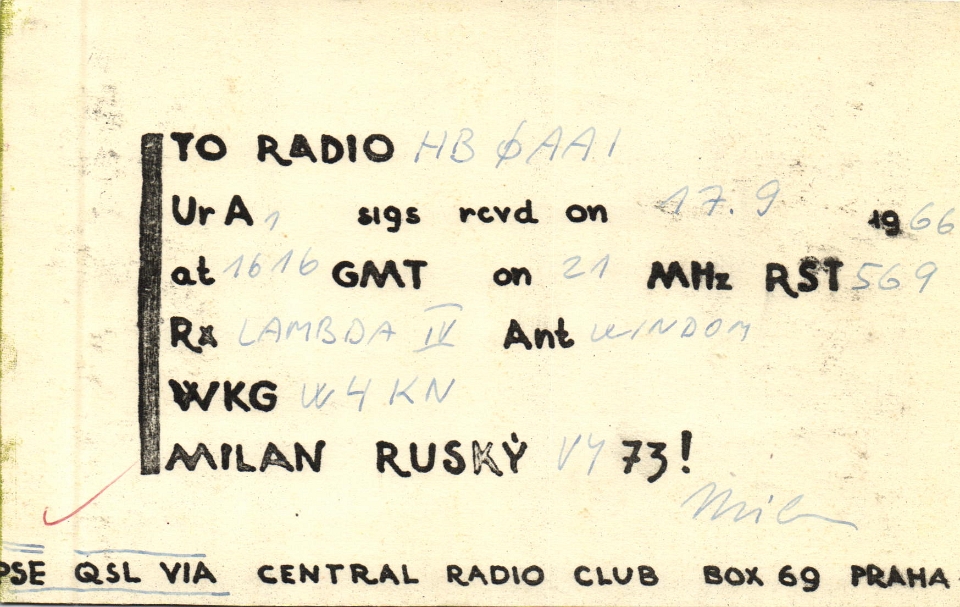 TO RADIO HB ØAA1
Ur A1 sigs rcvd on 17. 9 1966
at 1616 GMT on 21 MHz RST 569
Rx LAMBDA IV Ant WINDOM
WKG W4KN
MILAN RUSKÝ VY 73!
Milan
PSE QSL VIA CENTRAL RADIO CLUB BOX 69 PRAHA